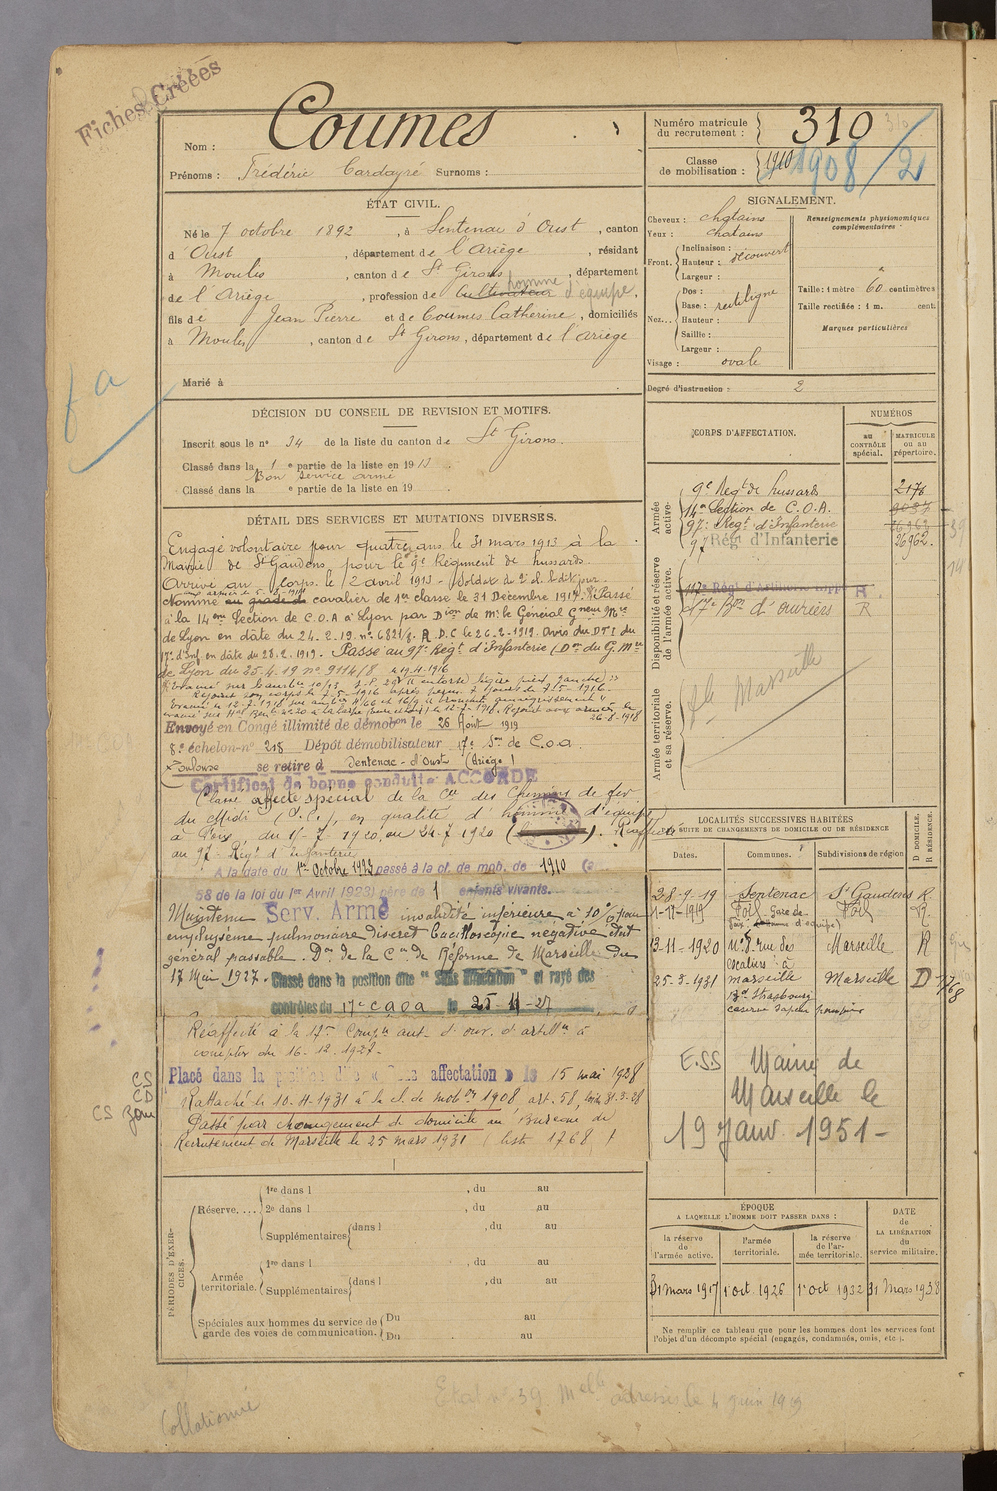 Fiches Créées
Nom : Coumes
Prénoms : Frédéric Cardayré Surnoms :
Numéro matricule du recrutement : 310
Classe de mobilisation : 1910 1908/21
ÉTAT CIVIL.
Né le 7 octobre 1892, à Sentenac d'Oust, canton
d'Oust, département de l'Ariège, résidant
à Moulis, canton de St Girons, département
de l'Ariège, profession de Cultivateur homme d'équipe,
fils de Jean Pierre et de Coumes Catherine, domiciliés
à Moulis, canton de St Girons, département de l'Ariège
Marié à
fa
SIGNALEMENT.
Cheveux : chatains
Yeux : chatains
Front. Inclinaison :
Hauteur : découvert
Largeur :
Nez... Dos :
Base : rectiligne
Hauteur :
Saillie :
Largeur :
Visage : ovale
Renseignements physionomiques complémentaires :
Taille : 1 mètre 60 centimètres
Taille rectifiée : 1 m. cent.
Marques particulières
Degré d'instruction : 2
DÉCISION DU CONSEIL DE REVISION ET MOTIFS.
Inscrit sous le n° 34 de la liste du canton de St Girons.
Classé dans la 1e partie de la liste en 1913.
Bon service armé
Classé dans la e partie de la liste en 19 .
DÉTAIL DES SERVICES ET MUTATIONS DIVERSES.
Engagé volontaire pour quatre ans le 31 mars 1913 à la
Mairie de St Gaudens pour le 9e Régiment de hussards.
Arrivé au corps le 2 avril 1913 - Soldat de 2e cl. ledit jour.
Nommé au grade de cavalier de 1ere classe le 31 Décembre 1914. Passé
à la 14ème Section de C.O.A à Lyon par Dion de Mr le Général Gneur Mre
de Lyon en date du 24.2.19 n° 6821/8. R.D.C le 26-2-1919. Avis du DTI du
17e d'Inf. en date du 28.2.1919. Passé au 97e Régt d'Infanterie (Don du G. Mre
de Lyon du 25.4.19 n° 9114/8
Envoyé en Congé illimité de démobon le 26 Août 1919
8e échelon-n° 218 Dépôt démobilisateur 17e Son de C.o.a.
Toulouse se retire à Sentenac-d'Oust (Ariège)
Certificat de bonne conduite ACCORDÉ
Classé affecté spécial de la Cie des Chemins de fer
du Midi, en qualité d'homme d'équipe
à Foix du 11-7-1920 au 24-7-1920
au 97e Régt d'Infanterie
A la date du 1er Octobre 1923 passé à la cl. de mob. de 1910 (art.
58 de la loi du 1er Avril 1923) père de 1 enfants vivants.
Maintenu Serv. Armé invalidité inférieure à 10% pour
emphysème pulmonaire discret bacilloscopie négative état
général passable. Don de la Con de Réforme de Marseille du
17 Mai 1927. Classé dans la position dite "Sans Affectation" et rayé des
contrôles du 17e caoa le 25-11-27
Réaffecté à la 17e Compie aut. d'ouv. d'artillie à
compter du 16.12.1927.
Placé dans la position dite "Sans affectation" le 15 mai 1928
Rattaché le 10-4-1931 à la cl. de mobon 1908 art. 58, loi 31.3.28
Passé par changement de domicile au Bureau de
Recrutement de Marseille le 25 mars 1931 (liste 1768)
CS
CD
CORPS D'AFFECTATION.
NUMÉROS
au CONTRÔLE spécial.
MATRICULE ou au répertoire.
Armée active.
9e Regt de hussards 2178
14e Section de C.O.A.
97e Regt d'Infanterie
97 Régt d'Infanterie 26962.
Disponibilité et réserve de l'armée active.
R
17e Bon d'ouvriers R
Armée territoriale et sa réserve.
Marseille
LOCALITÉS SUCCESSIVES HABITÉES
PAR SUITE DE CHANGEMENTS DE DOMICILE OU DE RÉSIDENCE
Dates. Communes. Subdivisions de région D DOMICILE. R RÉSIDENCE.
28-9-19 Sentenac St Gaudens R
1-11-1919 Foix Gare de Foix (homme d'équipe) Foix R
13-11-1920 n° 8 rue des escaliers à Marseille R
25.3.1931 Marseille Marseille D 1768
Bd Strasbourg
caserne sapeurs pompiers
E.SS Mairie de
Marseille le
19 Janv. 1951-
PÉRIODES D'EXERCICES.
Réserve.... 1re dans l , du au
2e dans l , du au
Supplémentaires dans l , du au
Armée territoriale. 1re dans l , du au
Supplémentaires dans l , du au
Spéciales aux hommes du service de garde des voies de communication. Du au
Du au
ÉPOQUE
A LAQUELLE L'HOMME DOIT PASSER DANS :
la réserve de l'armée active.
l'armée territoriale.
la réserve de l'armée territoriale.
DATE de LA LIBÉRATION du service militaire.
31 mars 1917 1er oct. 1926 1er oct 1932 31 Mars 1938
Ne remplir ce tableau que pour les hommes dont les services font
l'objet d'un décompte spécial (engagés, condamnés, omis, etc.).
Etat n° 39 Melle adressé le 4 juin 1919
Collationné